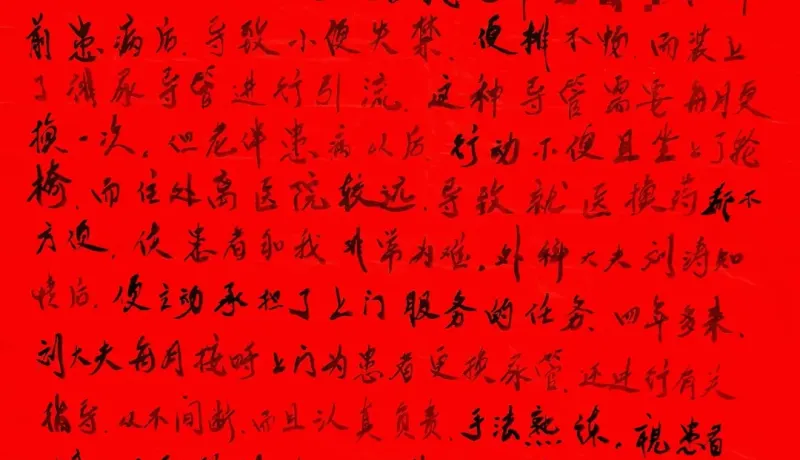 前患病后,导致小便失禁,便排不畅,而装上
了排尿导管进行引流,这种导管需要每月更
换一次,但老伴患病以后,行动不便且坐上了轮
椅,而住处离医院较远,导致就医换药都不
方便,使患者和我非常为难。外科大夫刘涛知
情后,便主动承担了上门服务的任务,四年多来,
刘大夫每月按时上门为患者更换尿管,还进行有关
指导,从不间断,而且认真负责,手法熟练。视患者